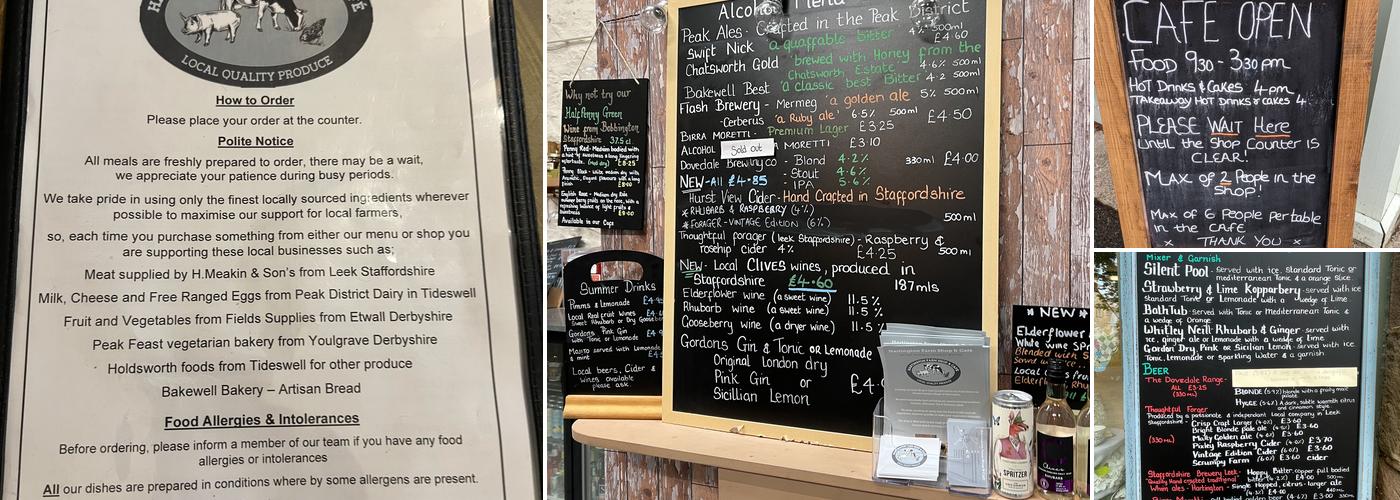 LOCAL QUALITY PRODUCE
How to Order
Please place your order at the counter.
Polite Notice
All meals are freshly prepared to order, there may be a wait,
we appreciate your patience during busy periods.
We take pride in using only the finest locally sourced ingredients wherever
possible to maximise our support for local farmers,
so, each time you purchase something from either our menu or shop you
are supporting these local businesses such as;
Meat supplied by H.Meakin & Son's from Leek Staffordshire
Milk, Cheese and Free Ranged Eggs from Peak District Dairy in Tideswell
Fruit and Vegetables from Fields Supplies from Etwall Derbyshire
Peak Feast vegetarian bakery from Youlgrave Derbyshire
Holdsworth foods from Tideswell for other produce
Bakewell Bakery – Artisan Bread
Food Allergies & Intolerances
Before ordering, please inform a member of our team if you have any food
allergies or intolerances
All our dishes are prepared in conditions where by some allergens are present.
Why not try our
Halfpenny Green
Wine from Bobbington
Staffordshire 37.5cl
Available in our Cafe
Summer Drinks
Pimms & Lemonade
Local Real fruit Wines
Gordons Pink Gin
with Tonic or Lemonade
Mojito served with Lemonade
& mint
Local beers, Cider &
Wines available
please ask.
Alcohol Menu
Peak Ales - Crafted in the Peak District
Swift Nick 'a quaffable bitter 4% 500ml £4.60
Chatsworth Gold 'brewed with Honey from the
Chatsworth Estate 4.6% 500ml
Bakewell Best 'a classic best Bitter 4.2 500ml
Flash Brewery - Mermeg 'a golden ale 5% 500ml
-Cerberus 'a Ruby ale' 6.5% 500ml £4.50
BIRRA MORETTI - Premium Lager £3.25
ALCOHOL Sold out MORETTI £3.10
Dovedale Brewing co - Blond 4.2% 330ml £4.00
- Stout 4.6%
NEW-All £4.85 - IPA 5.6%
Hurst View Cider - Hand Crafted in Staffordshire
* RHUBARB & RASPBERRY (4%)
* FORAGER - VINTAGE Edition (6%) 500ml
Thoughtful forager (leek Staffordshire) - Raspberry &
rosehip cider 4% £4.25 500ml
NEW - Local CLIVES wines, produced in
Staffordshire £4.60 187mls
Elderflower wine (a sweet wine) 11.5%
Rhubarb wine (a sweet wine) 11.5%
Gooseberry wine (a dryer wine) 11.5%
Gordons Gin & Tonic or Lemonade
Original London dry
Pink Gin or £4.
Sicillian Lemon
Hartington Farm Shop & Cafe
* NEW *
Elderflower
White wine
SPRITZER
CAFE OPEN
FOOD 9.30 - 3.30pm
HOT DRINKS & CAKES 4pm
TAKEAWAY HOT DRINKS & CAKES 4
PLEASE WAIT Here
Until the Shop Counter IS
CLEAR!
MAX OF 2 People in the
Shop!
MAX OF 6 People per table
in the CAFE
x THANK YOU x
Mixer & Garnish
Silent Pool - Served with ice, Standard Tonic or
mediterranean Tonic & a orange slice
Strawberry & Lime Kopparberg - served with ice
Standard Tonic or Lemonade with a wedge of Lime
BathTub - Served with Tonic or Mediterranean Tonic &
a wedge of Orange
Whitley Neill Rhubarb & Ginger - served with
ice, ginger ale or lemonade with a wedge of lime
Gordon Dry, Pink or Sicilian Lemon - served with ice
Tonic, Lemonade or sparkling Water & a garnish
BEER
The Dovedale Range -
ALL £3.25
(330ml)
Thoughtful Forger
Produced by a passionate & independant Local company in Leek
Staffordshire - Crisp Craft Larger (4.0%) £3.60
Bright Blonde pale ale £3.60
Malty Golden ale £3.60
(330ml) Pixley Raspberry Cider £3.70
Vintage Edition Cider (6.0%) £3.60
Scrumpy Farm (6.0%) £3.60 cider
Staffordshire Brewery Leek - Hoppy Bitter, copper full bodied
When ales - Hartington - Single Hopped, citrus-larger ale